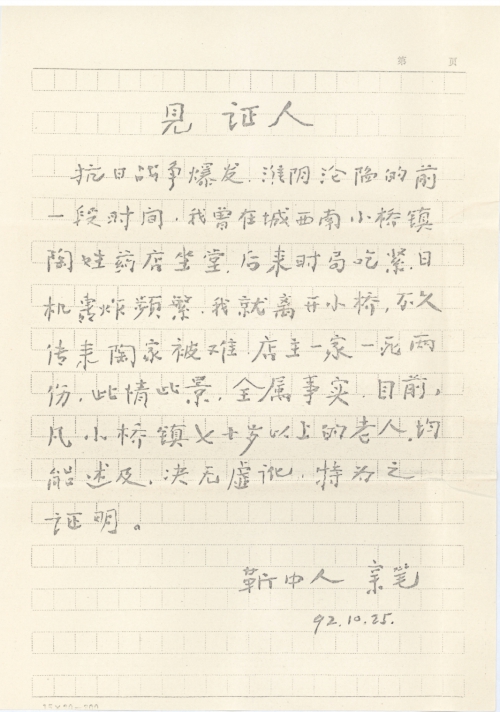 第 页
见证人
抗日战争爆发.淮阴沦陷的前
一段时间.我曾在城西南小桥镇
陶姓药店坐堂.后来时局吃紧.日
机轰炸频繁.我就离开小桥,不久
传来陶家被难.店主一家一死两
份.此情此景.全属事实.目前,
凡小桥镇七十岁以上的老人.均
能述及.决无虚讹.特为之
证明。
靳中人 亲笔
92.10.25.